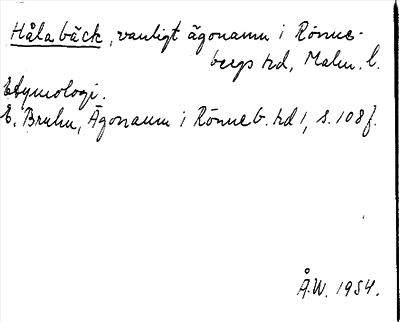 Hålabäck, vanligt ägonamn i Rönne-
bergs hd, Malm. l.
Etymologi.
E. Bruhn, Ägonamn i Rönneb. hd 1, s. 108 f.
Å.W. 1954.